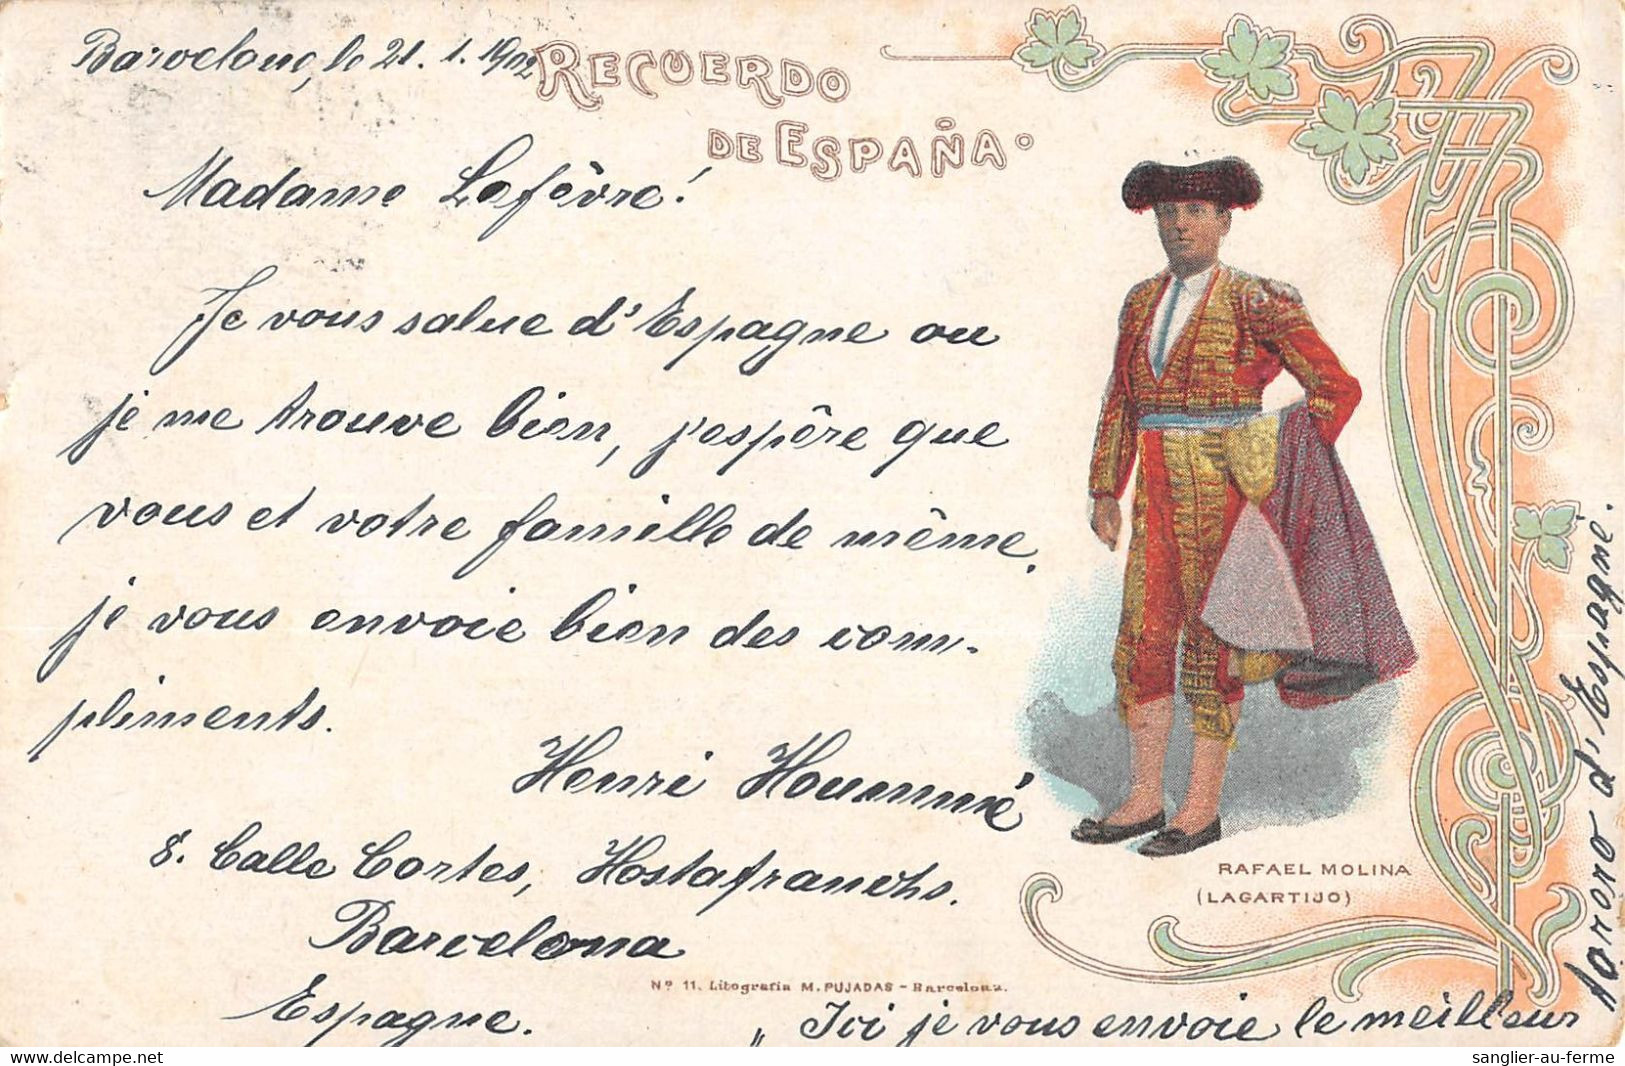 Barcelone, le 21. 1. 1902
RECUERDO
DE ESPAÑA
Madame Lefèvre!
Je vous salue d'Espagne ou
je me trouve bien, j'espère que
vous et votre famille de même.
je vous envoie bien des com-
pliments.
Henri
8. Calle Cortes, Hostafranchs.
Barcelona
Espagne.
RAFAEL MOLINA
(LAGARTIJO)
Nº 11. Litografia M. PUJADAS - Barcelona.
„ Ici je vous envoie le meilleur
torero d'Espagne.
sanglier-au-ferme